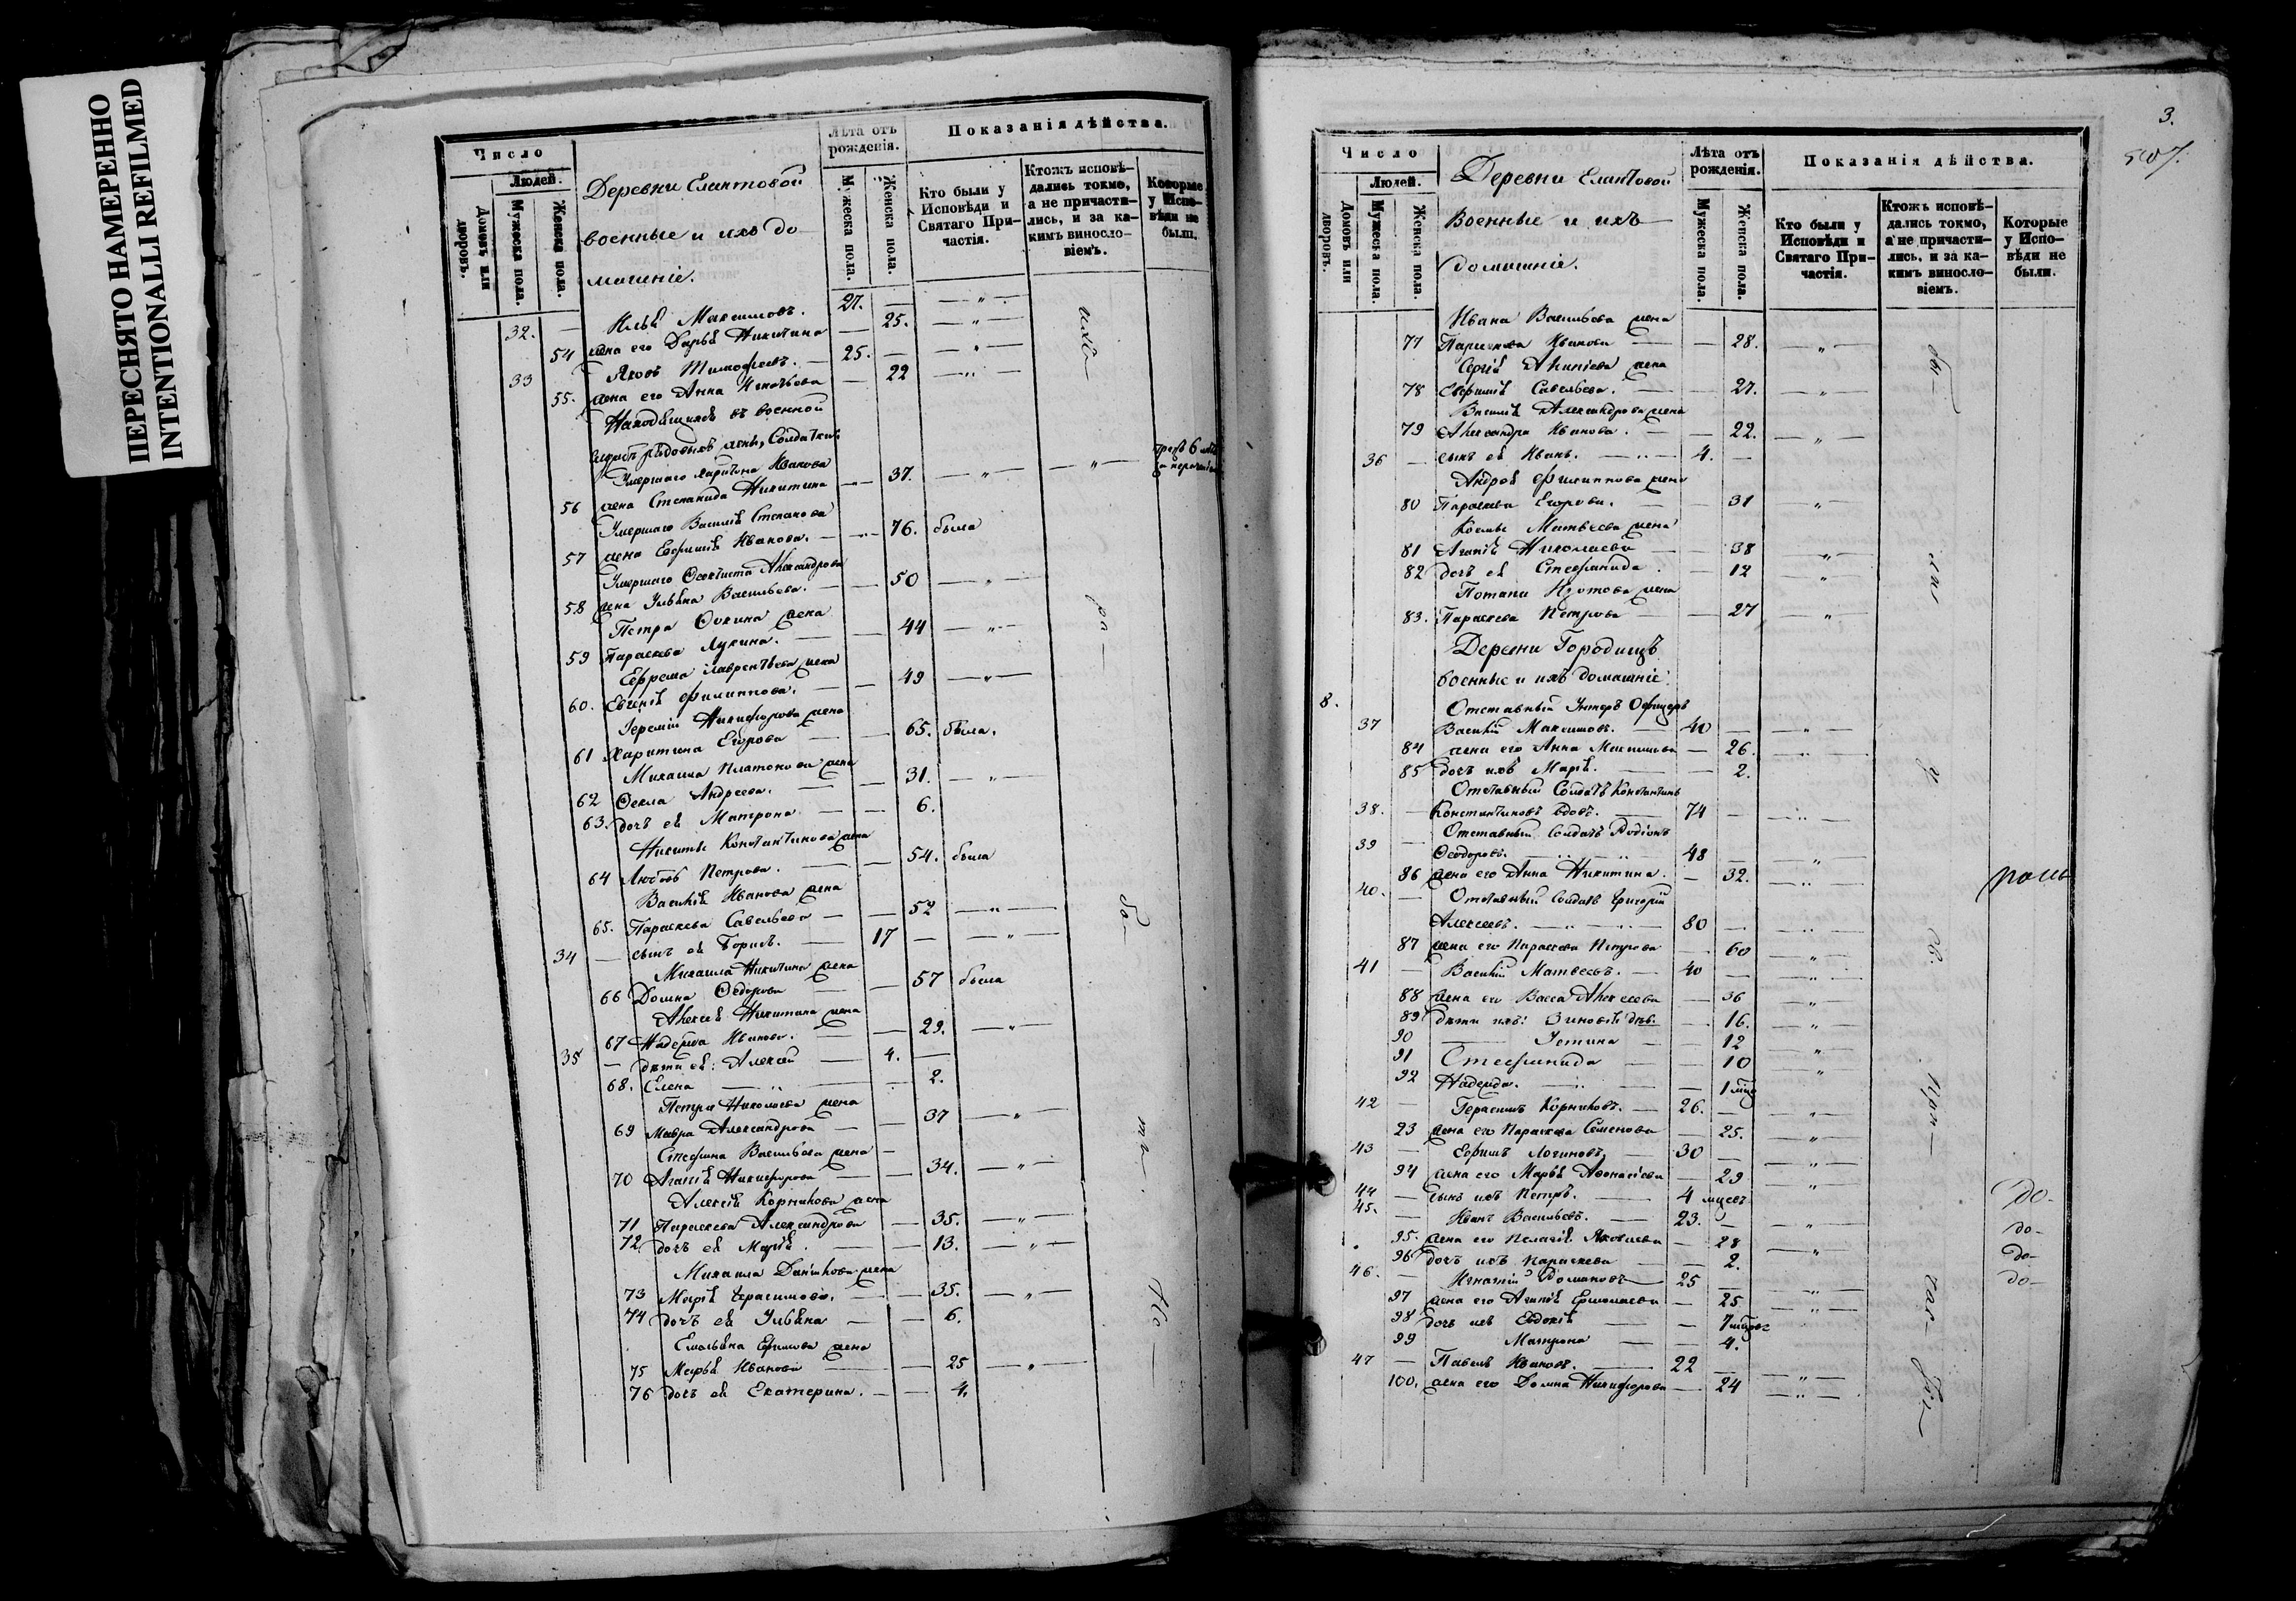 ПЕРЕСНЯТО НАМЕРЕННО
INTENTIONALLI REFILMED
Число
Людей.
Домовъ или дворовъ.
Мужеска пола.
Женска пола.
Деревни Елантовой
военные и ихъ до-
машніе.
Лѣта отъ рожденія.
Мужеска пола.
Женска пола.
Показанія дѣйства.
Кто были у Исповѣди и Святаго Причастія.
Ктожъ исповѣ-
дались токмо,
а не причасти-
лись, и за ка-
кимъ винословіемъ.
Которые у Исповѣди не были.
32. — Илья Максимовъ. 27. — — „ —
54 жена его Дарья Никитина — 25. — „ —
33 Яковъ Тимофеевъ. — 25. — — „ —
55. жена его Анна Игнатьева — 22 — „ —
Находящихся въ военной
службѣ рядовыхъ жены, Солдатки:
Умершаго Харитона Иванова
56 жена Степанида Никитина — 37. — „ — — „ —
Умершаго Василія Степанова
57 жена Евфимія Иванова. — 76. была
Умершаго Феоктиста Александрова
58 жена Ульяна Васильева. — 50 — „ —
Петра Фокина жена
59 Параскева Лукина. — 44 — „ —
Ефрема Лаврентьева жена
60. Евгенія Филиппова. — 49 — „ —
Іереміи Никифорова жена
61 Харитина Егорова — 65. была.
Михаила Платонова жена
62 Фекла Андреева. — 31. — „ —
63. дочь ея Матрона — 6.
Никиты Константинова жена
64 Любовь Петрова. — 54. была
Василія Иванова жена
65. Параскева Савельева — 52 — „ —
34 — сынъ ея Борисъ. — 17 — — „ —
Михаила Никитина жена
66 Домна Федорова — 57 была
Алексея Никитина жена
67 Надежда Иванова. — 29. — „ —
35 — дѣти ея: Алексей — 4. —
68. Елена — „ — 2.
Петра Николаева жена
69 Мавра Александрова — 37 — „ —
Стефана Васильева жена —
70 Агапія Никифорова — 34. — „ —
Алексея Корнилова жена
71 Параскева Александрова — 35. — „ —
72. дочь ея Марія. — 13. — „ —
Михаила Данилова жена
73 Марія Герасимова. — 35. — „ —
74 дочь ея Ульяна — 6.
Емельяна Ефимова жена
75 Марья Иванова — 25 — „ —
76 дочь ея Екатерина. — 4.
3.
507.
Число
Людей.
Домовъ или дворовъ.
Мужеска пола.
Женска пола.
Деревни Елантовой
Военные и ихъ
домашніе.
Лѣта отъ рожденія.
Мужеска пола.
Женска пола.
Показанія дѣйства.
Кто были у Исповѣди и Святаго Причастія.
Ктожъ исповѣ-
дались токмо,
а не причасти-
лись, и за ка-
кимъ винословіемъ.
Которые у Исповѣди не были.
Ивана Васильева жена
77 Параскева Иванова — 28. — „ —
Сергія Ананіева жена
78 Евфимія Савельева. — 27. — „ —
Василія Александрова жена
79 Александра Иванова. — 22. — „ —
36 — сынъ ея Иванъ. — „ — 4. —
Андрея Филиппова жена
80 Параскева Егорова. — 31 — „ —
Козьмы Матвеева жена
81 Агапія Николаева — 38 — „ —
82 дочь ея Стефанида. — 12 — „ —
Потапа Изотова жена
83. Параскева Петрова — 27 — „ —
Деревни Городищъ
военные и ихъ домашніе:
8. Отставный Унтеръ Офицеръ
37 Василій Максимовъ. — 40 — — „ —
84 жена его Анна Максимова — 26. — „ —
85 дочь ихъ Марія. — 2.
Отставный Солдатъ Константинъ
38. — Константиновъ вдовъ. — 74 — — „ —
Отставный Солдатъ Родіонъ
39 — Феодоровъ. — „ — 48 — — „ —
86 жена его Анна Никитина. — 32. — „ —
40. — Отставный Солдатъ Григорій
Алексеевъ. — „ — 80 — — „ —
87 жена его Параскева Петрова — 60 — „ —
41 — Василій Матвеевъ. — 40 — — „ —
88 жена его Васса Алексеева — 36 — „ —
89 дѣти ихъ: Зиновія дѣв. — 16. — „ —
90 — Устина — 12 — „ —
91 Стефанида — 10 — „ —
92 Надежда. — „ — 1
42 — Герасимъ Корниловъ. — 26. — — „ —
23 жена его Параскева Семенова — 25. — „ —
43 — Ефимъ Логиновъ. — 30 — — „ —
94 жена его Марья Афонасіева — 29 — „ —
44 — сынъ ихъ Петръ. — 4 до-
45. — Иванъ Васильевъ. — 23. — — „ — до-
95. жена его Пелагія Яковлева — 28 — „ — до-
96 дочь ихъ Параскева — 2. до-
46. — Игнатій Романовъ — 25 — — „ —
97 жена его Агапія Ермолаева — 25 — „ —
98 дочь ихъ Евдокія — 7
99 Матрона — 4.
47 — Павелъ Ивановъ. — 22 — — „ —
100. жена его Домна Никифорова — 24 — „ —